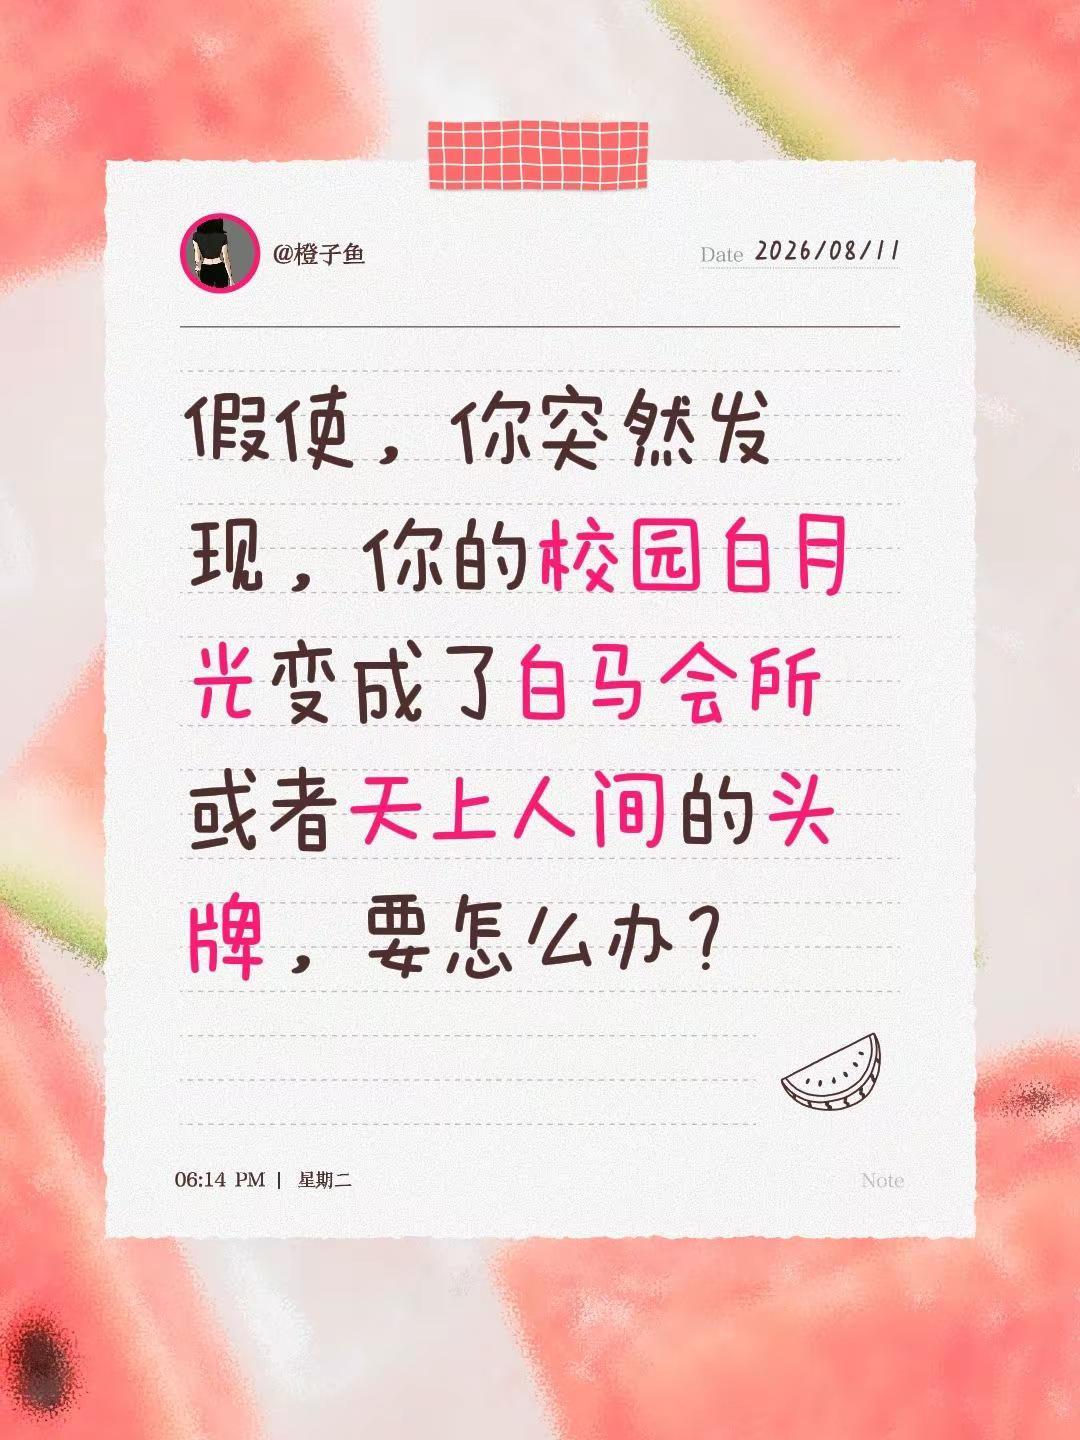 @橙子鱼
Date 2026/08/11
假使，你突然发
现，你的校园白月
光变成了白马会所
或者天上人间的头
牌，要怎么办？
06:14 PM | 星期二
Note